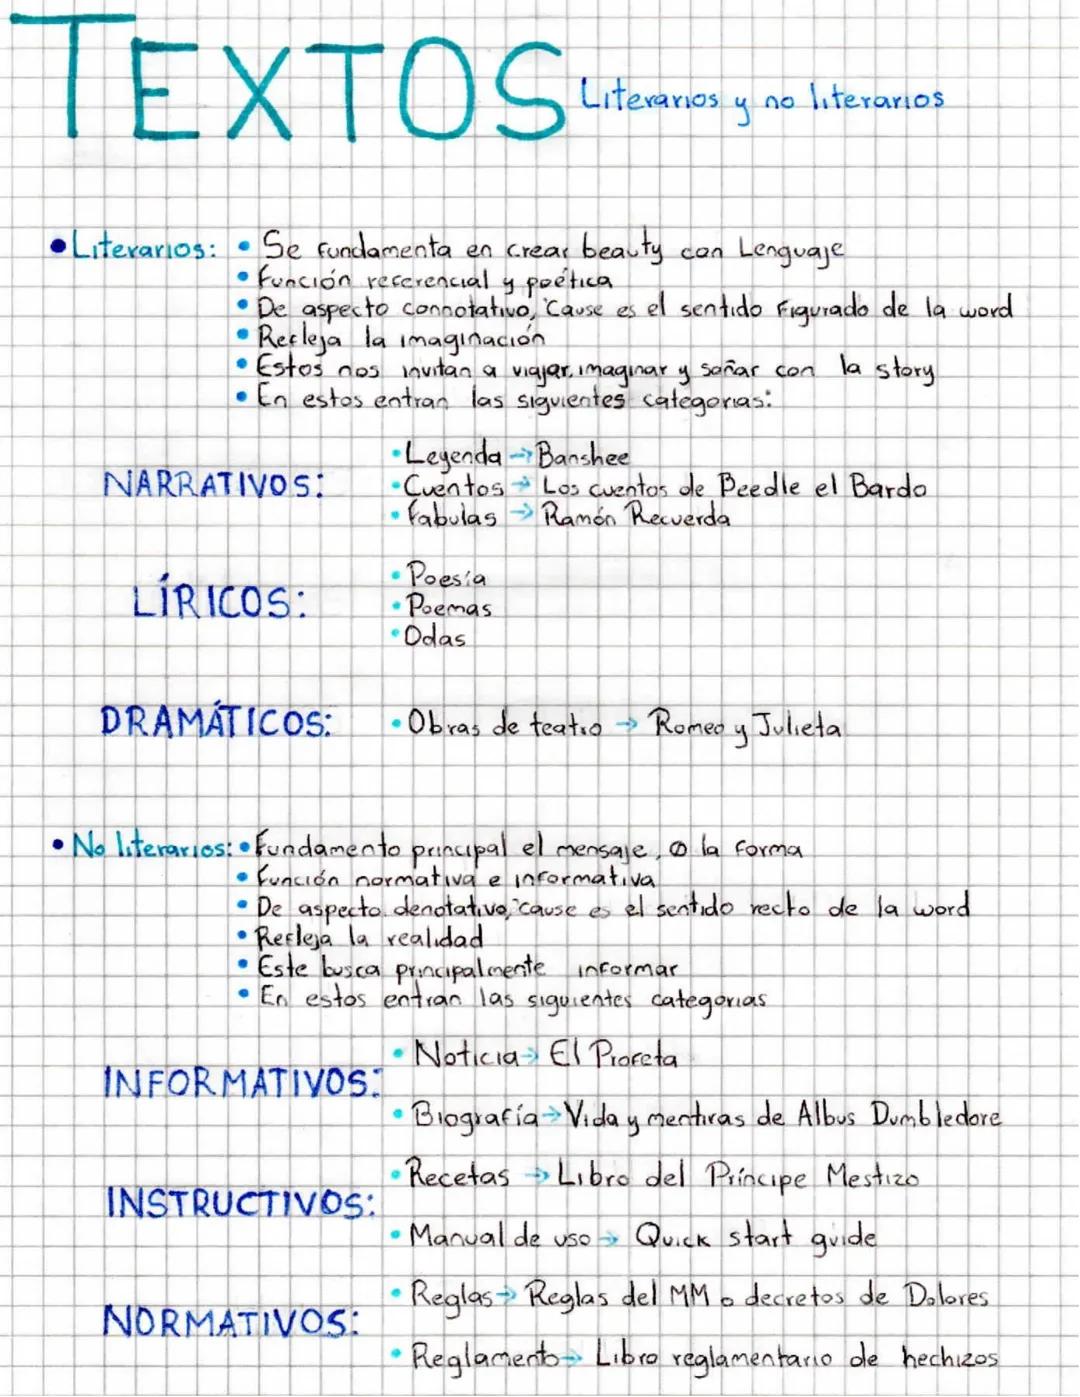 TEXTOS Literarios y no literarios
• Literarios: • Se fundamenta en crear beauty con Lenguaje
• Función referencial y poética
• De aspecto connotativo, 'Cause es el sentido Figurado de la word
• Refleja la imaginación
• Estos nos invitan a viajar, imaginar y soñar con la story
• En estos entran las siguientes categorias:
NARRATIVOS:
• Leyenda → Banshee
• Cuentos → Los cuentos de Beedle el Bardo
• Fabulas → Ramón Recuerda
LÍRICOS:
• Poesía
• Poemas
• Odas
DRAMÁTICOS: • Obras de teatro → Romeo y Julieta
• No literarios: • Fundamento principal el mensaje, Ø la forma
• Función normativa e informativa
• De aspecto denotativo, 'cause es el sentido recto de la word
• Refleja la realidad
• Este busca principalmente informar
• En estos entran las siguientes categorias
INFORMATIVOS:
• Noticia → El Profeta
• Biografía → Vida y mentiras de Albus Dumbledore
INSTRUCTIVOS:
• Recetas → Libro del Príncipe Mestizo
• Manual de uso → Quick start guide
NORMATIVOS:
• Reglas → Reglas del MM o decretos de Dolores
• Reglamento → Libro reglamentario de hechizos